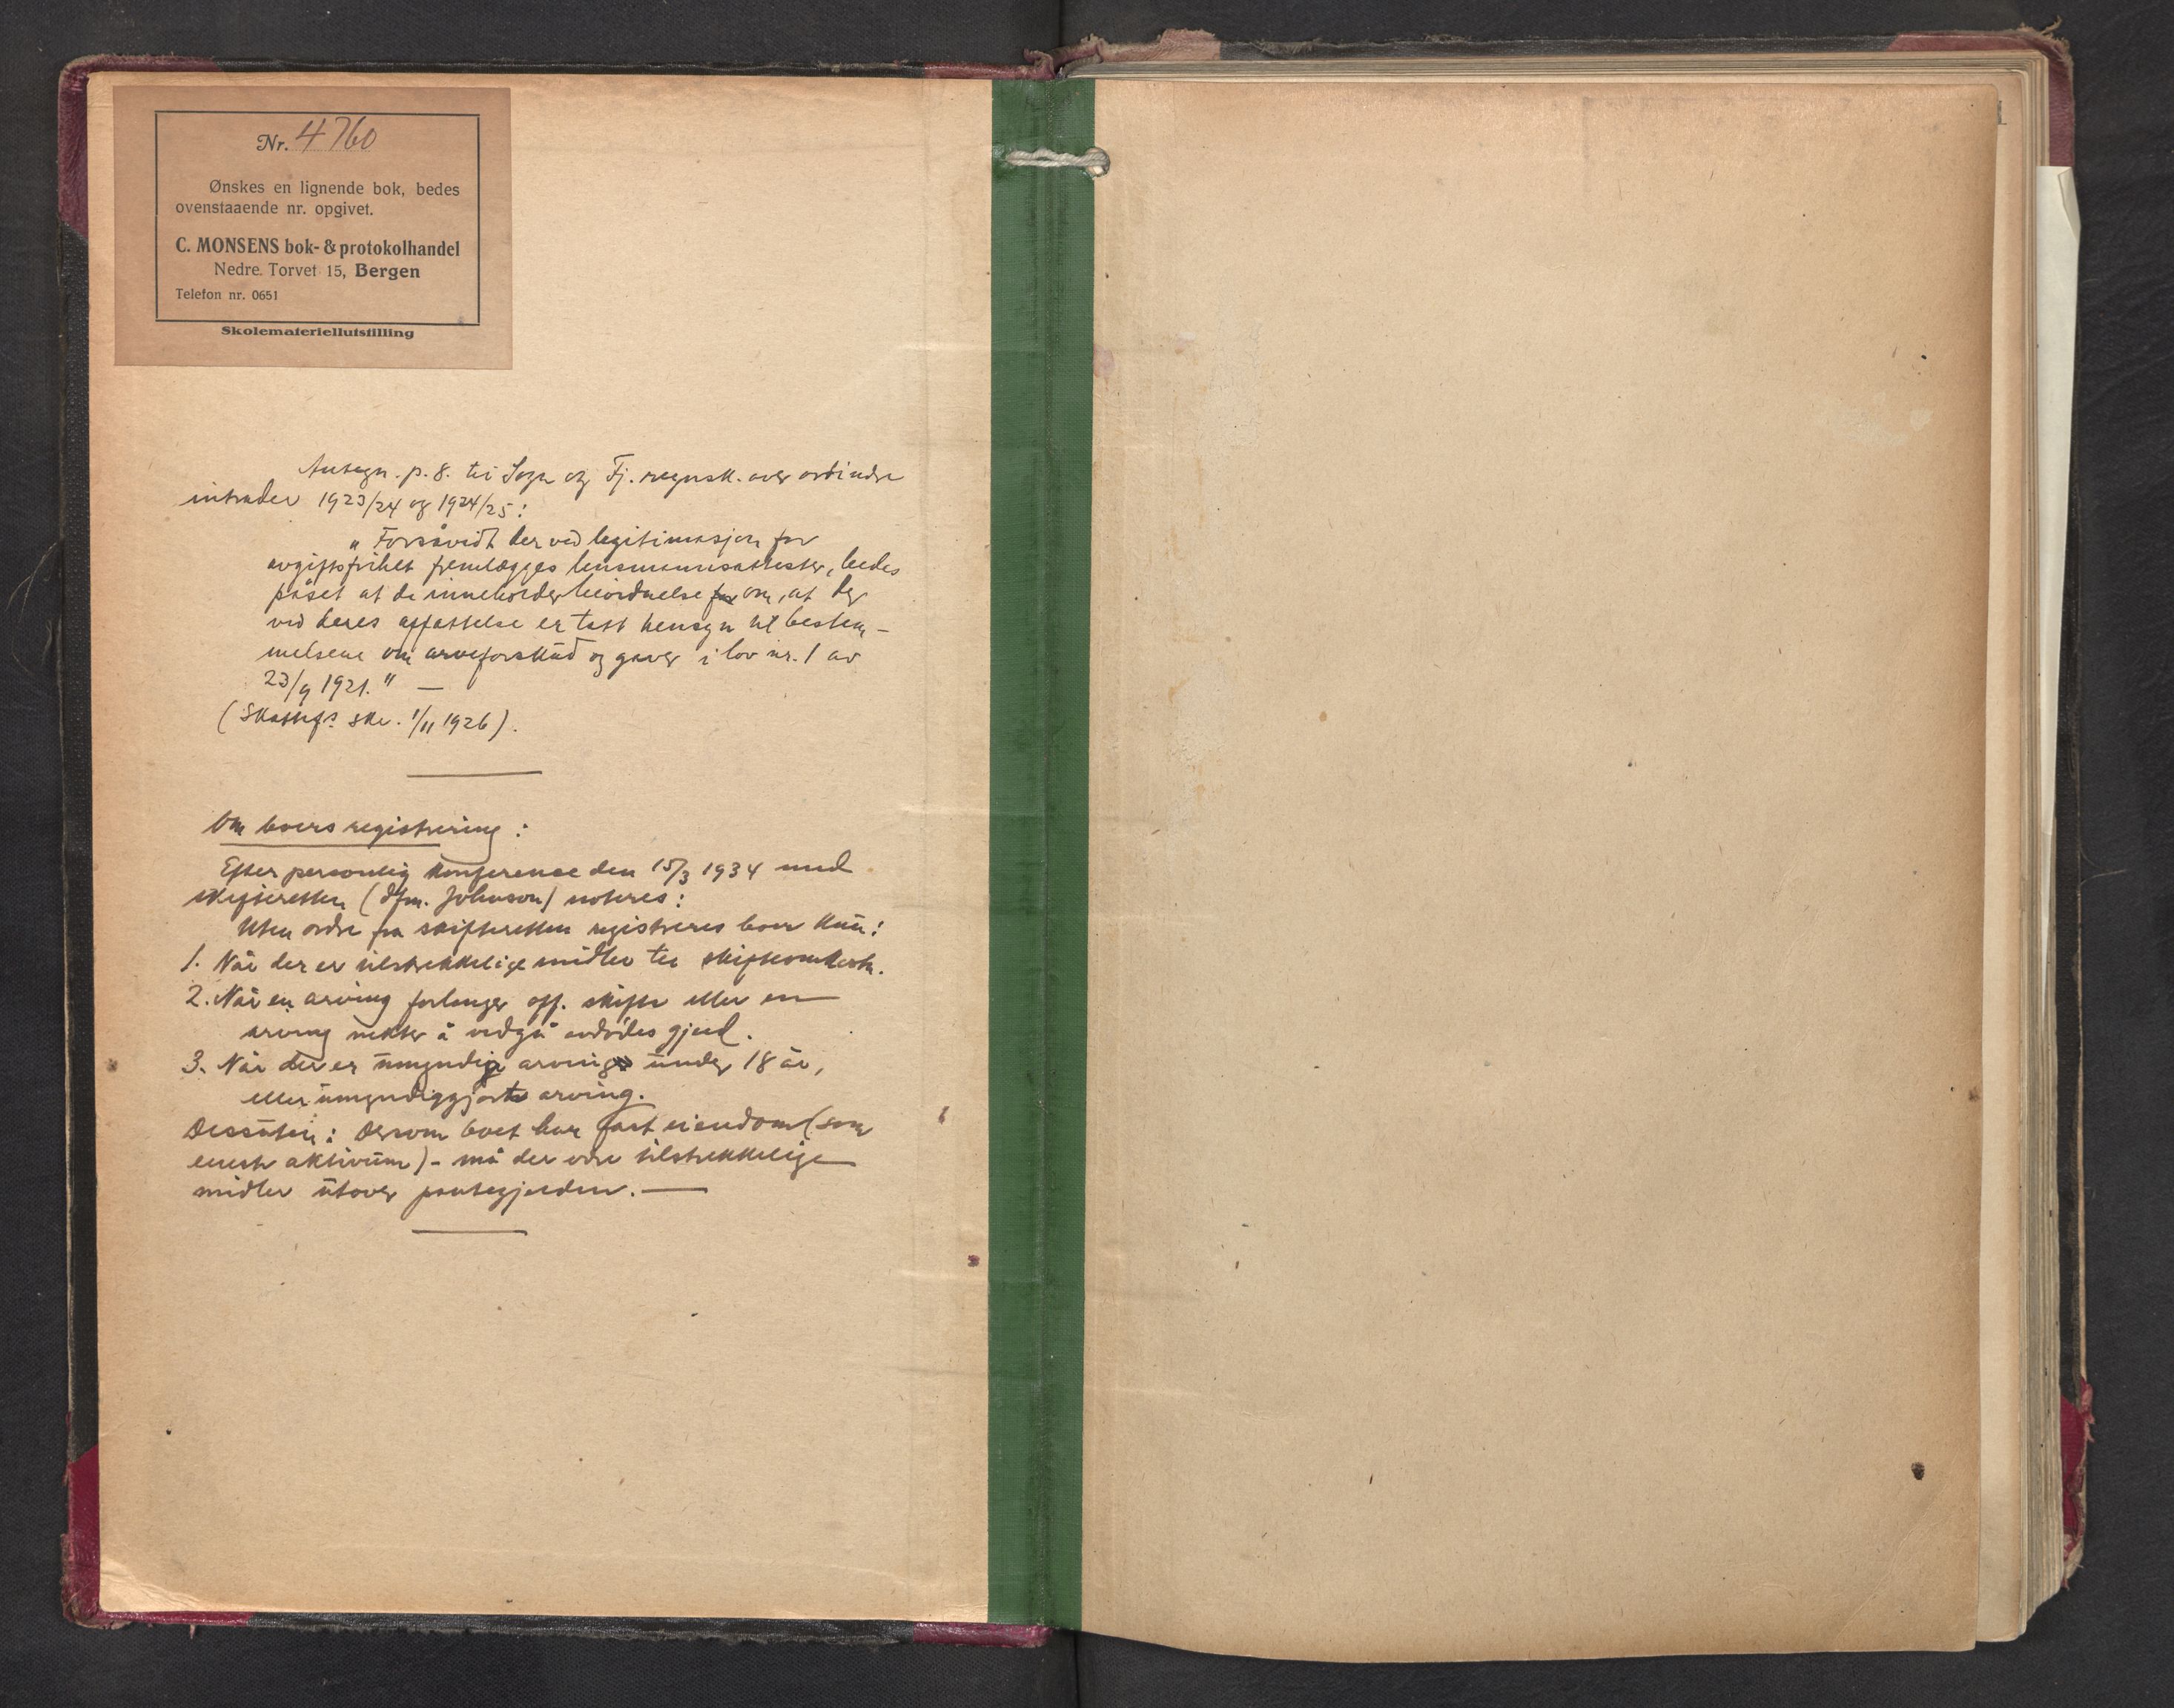 Nr. 4760
Ønskes en lignende bok, bedes
ovenstaaende nr. opgivet.
C. MONSENS bok- & protokolhandel
Nedre Torvet 15, Bergen
Telefon nr. 0651
Skolemateriellutstilling
Antegn. p. 8. til Sogn og Fj. regnsk. over ordinære
intrader 1923/24 og 1924/25:
"Forsåvidt der ved legitimasjon for
avgiftsfrihet fremlægges lensmannsattester, bedes
påset at de inneholder beordnelse for om, at der
ved deres affattelse er tatt hensyn til bestem-
melsene om arveforskud og gaver i lov nr. 1 av
23/9 1921." —
(Skattefs. skr. 1/11 1926).
Om boers registrering:
Efter personlig konference den 15/3 1934 med
skifteretten (dfm. Johnson) noteres:
Uten ordre fra skifteretten registreres boer kun:
1. Når der er tilstrekkelige midler til skifteomkostn.
2. Når en arving forlanger off. skifte eller en
arving nekter å vedgå avdødes gjeld.
3. Når der er umyndige arving under 18 år,
eller umyndiggjort arving.
Dessuten: Dersom boet har fast eiendom (som
eneste aktivum) - må der være tilstrekkelige
midler utover pantegjelden. —